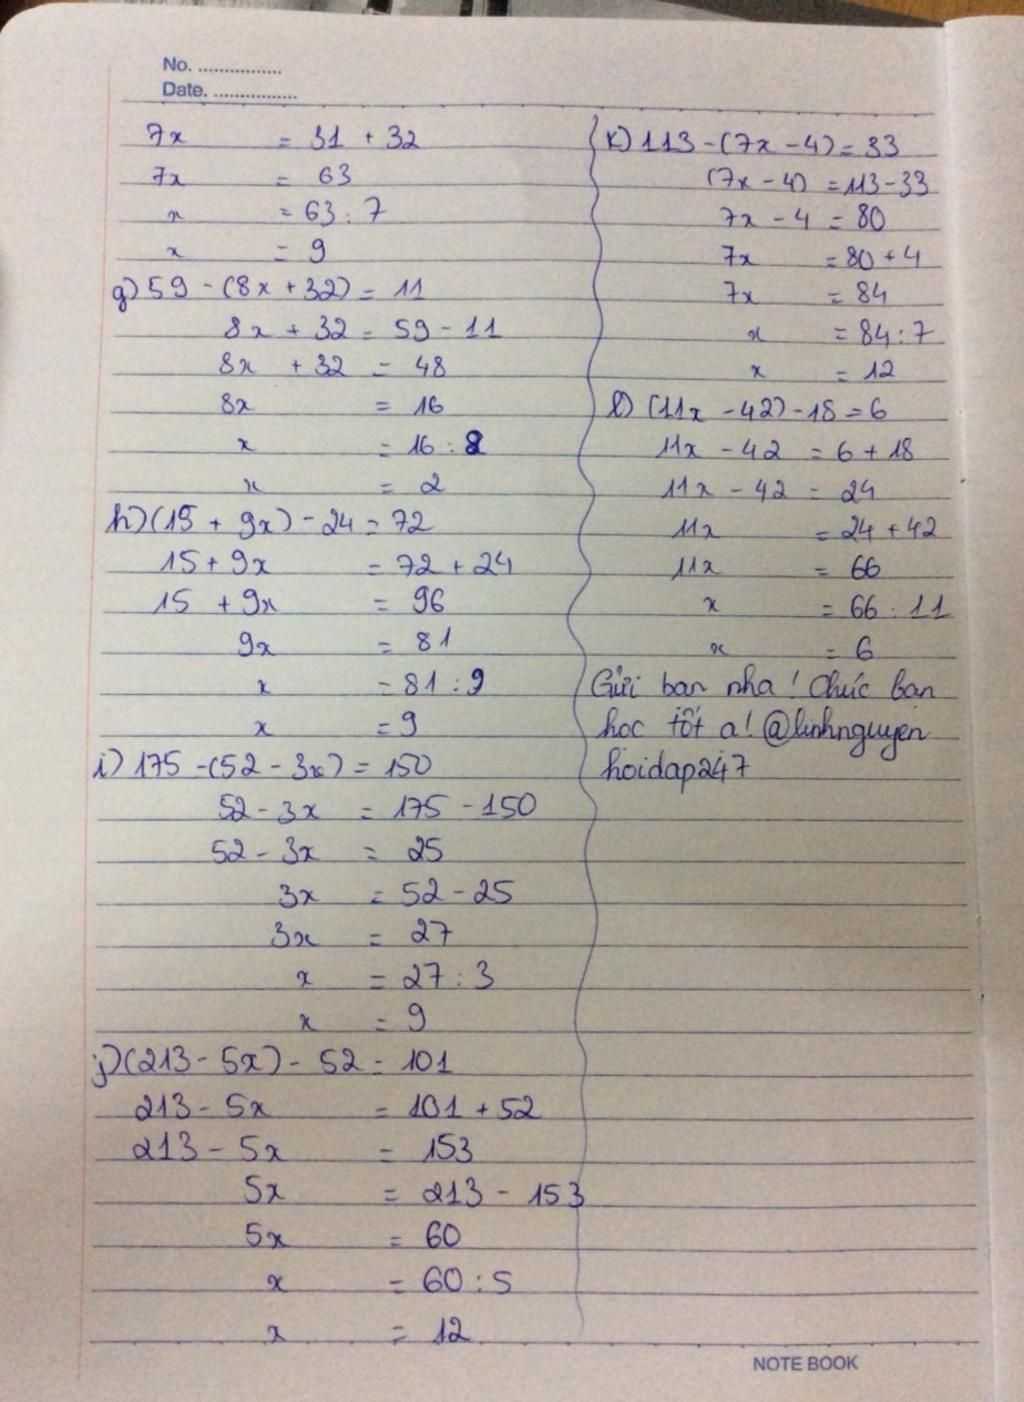 No. ................
Date. ................
7x = 31 + 32
7x = 63
x = 63 : 7
x = 9
g) 59 - (8x + 32) = 11
8x + 32 = 59 - 11
8x + 32 = 48
8x = 16
x = 16 : 8
x = 2
h) (15 + 9x) - 24 = 72
15 + 9x = 72 + 24
15 + 9x = 96
9x = 81
x = 81 : 9
x = 9
i) 175 - (52 - 3x) = 150
52 - 3x = 175 - 150
52 - 3x = 25
3x = 52 - 25
3x = 27
x = 27 : 3
x = 9
j) (213 - 5x) - 52 = 101
213 - 5x = 101 + 52
213 - 5x = 153
5x = 213 - 153
5x = 60
x = 60 : 5
x = 12
k) 113 - (7x - 4) = 33
(7x - 4) = 113 - 33
7x - 4 = 80
7x = 80 + 4
7x = 84
x = 84 : 7
x = 12
l) (11x - 42) - 18 = 6
11x - 42 = 6 + 18
11x - 42 = 24
11x = 24 + 42
11x = 66
x = 66 : 11
x = 6
Gửi bạn nha! Chúc bạn
học tốt ạ! @linhnguyen
hoidap247
NOTE BOOK